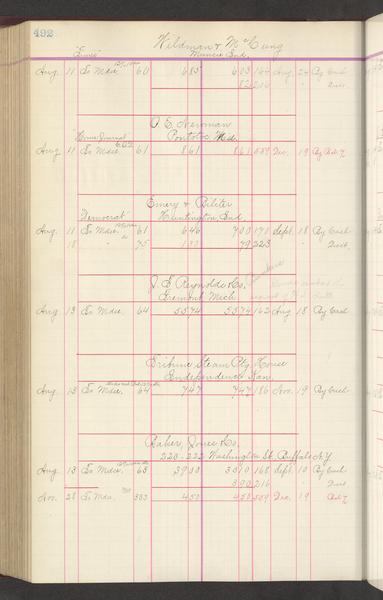 492
Wildman & McCung
"Times" Muncie Ind.
Aug 11 To Mdse. 60 685 603 164 Aug 24 By Cash
82 216 " Disc.
O. E. Newman
"Home Journal" Pontotoc, Md.
Aug 11 To Mdse 61 861 861 559 Dec. 19 By Bal. %
Emery & Biliter
"Democrat" Huntington, Ind.
Aug 11 To Mdse. 61 646 700 171 Sept. 18 By Cash
18 " 75 133 79 223 Disc.
J. E. Reynolds & Co.
Fremont, Mich.
Aug 13 To Mdse. 64 5574 5574 162 Aug 18 By Cash
Tribune Steam Ptg. House
Independence, Kan.
Aug. 13 To Mdse. 64 747 747 186 Nov. 19 By Cash
Baker, Jones & Co.
220-222 Washington St. Buffalo N.Y.
Aug 13 To Mdse. 65 3900 3510 168 Sept. 10 By Cash
390 216 Disc.
Nov. 28 To Mdse. 333 450 450 559 Dec. 19 Bal. %